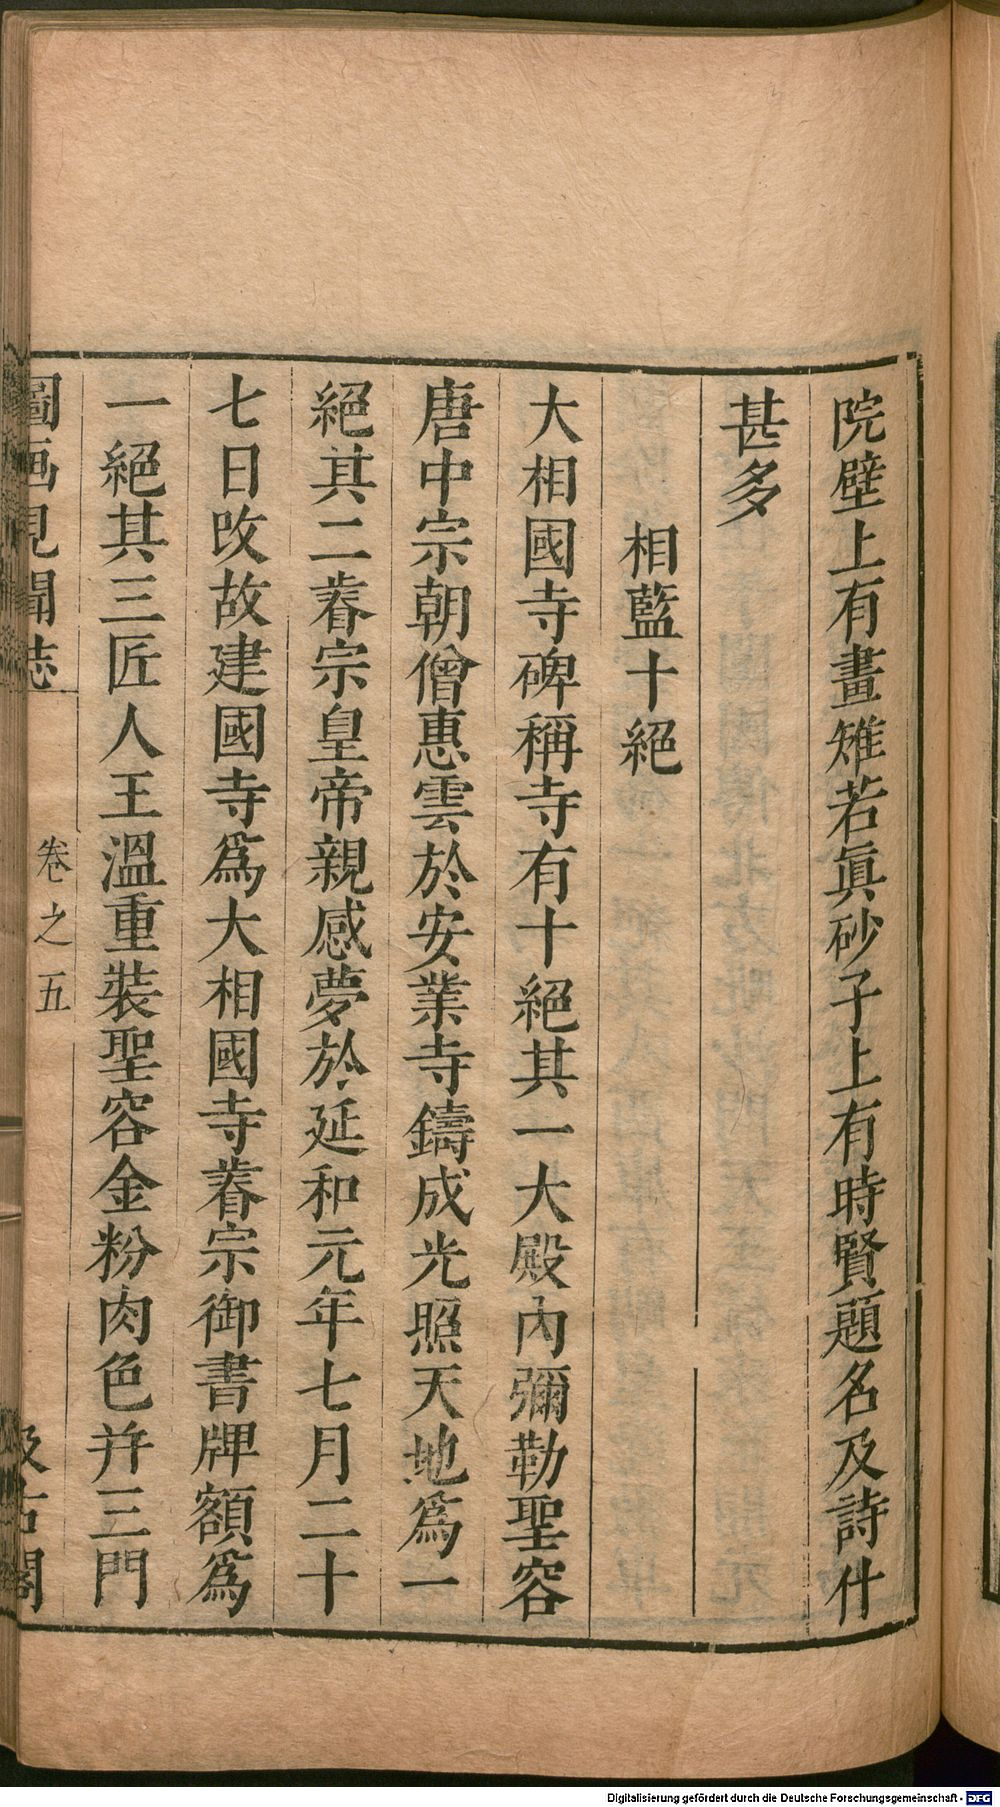 院壁上有畫雉若眞砂子上有時賢題名及詩什
甚多
相藍十絕
大相國寺碑稱寺有十絕其一大殿內彌勒聖容
唐中宗朝僧惠雲於安業寺鑄成光照天地爲一
絕其二睿宗皇帝親感夢於延和元年七月二十
七日改故建國寺爲大相國寺睿宗御書牌額爲
一絕其三匠人王溫重裝聖容金粉肉色并三門
圖画見聞志
卷之五
汲古閣
Digitalisierung gefördert durch die Deutsche Forschungsgemeinschaft - DFG